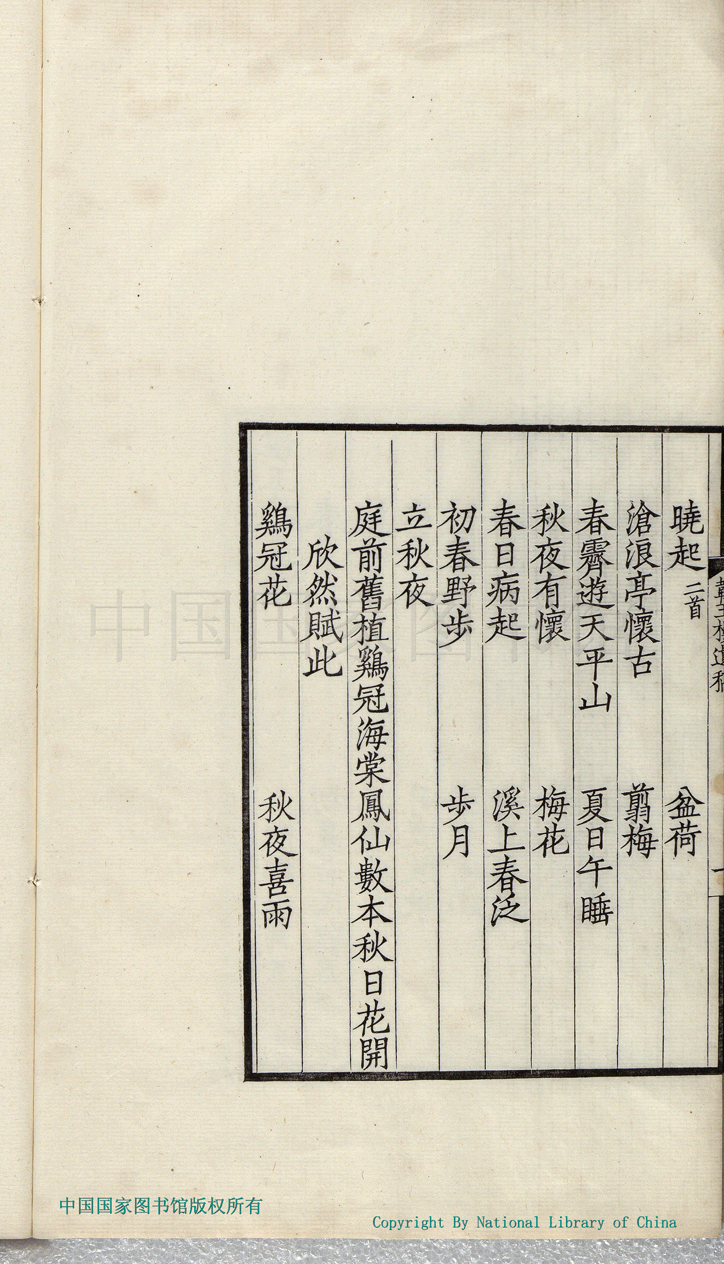 曉起二首　盆荷
滄浪亭懷古　翦梅
春霽遊天平山　夏日午睡
秋夜有懷　梅花
春日病起　溪上春泛
初春野步　步月
立秋夜
庭前舊植鷄冠海棠鳳仙數本秋日花開
欣然賦此
鷄冠花　秋夜喜雨
中国国家图书馆版权所有
Copyright By National Library of China